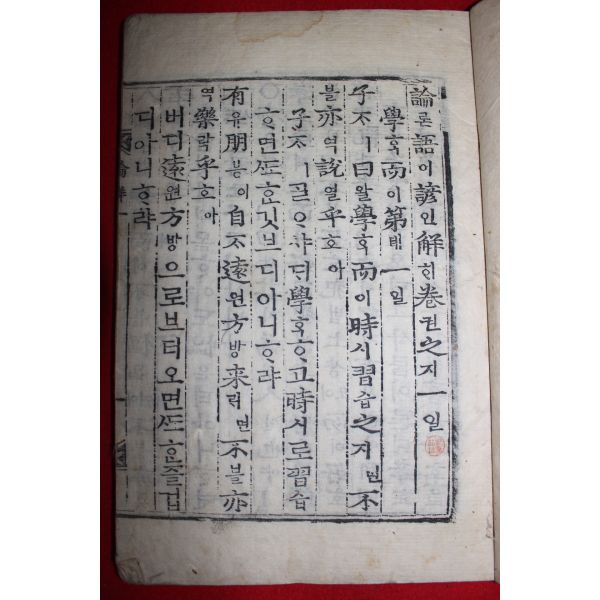 論론語어諺언解ᄒᆡ卷권之지一일
學ᄒᆞᆨ而이第뎨一일
子ᄌᆞㅣ曰왈學ᄒᆞᆨ而이時시習습之지면不
블亦역說열乎호아
子ᄌᆞㅣᄀᆞᆯᄋᆞ샤ᄃᆡ學ᄒᆞᆨᄒᆞ고時시로習습
ᄒᆞ면ᄯᅩᄒᆞᆫ깃브디아니ᄒᆞ랴
有유朋붕이自ᄌᆞ遠원方방来ᄅᆡ면不블亦
역樂락乎호아
버디遠원方방으로브터오면ᄯᅩᄒᆞᆫ즐겁
디아니ᄒᆞ랴